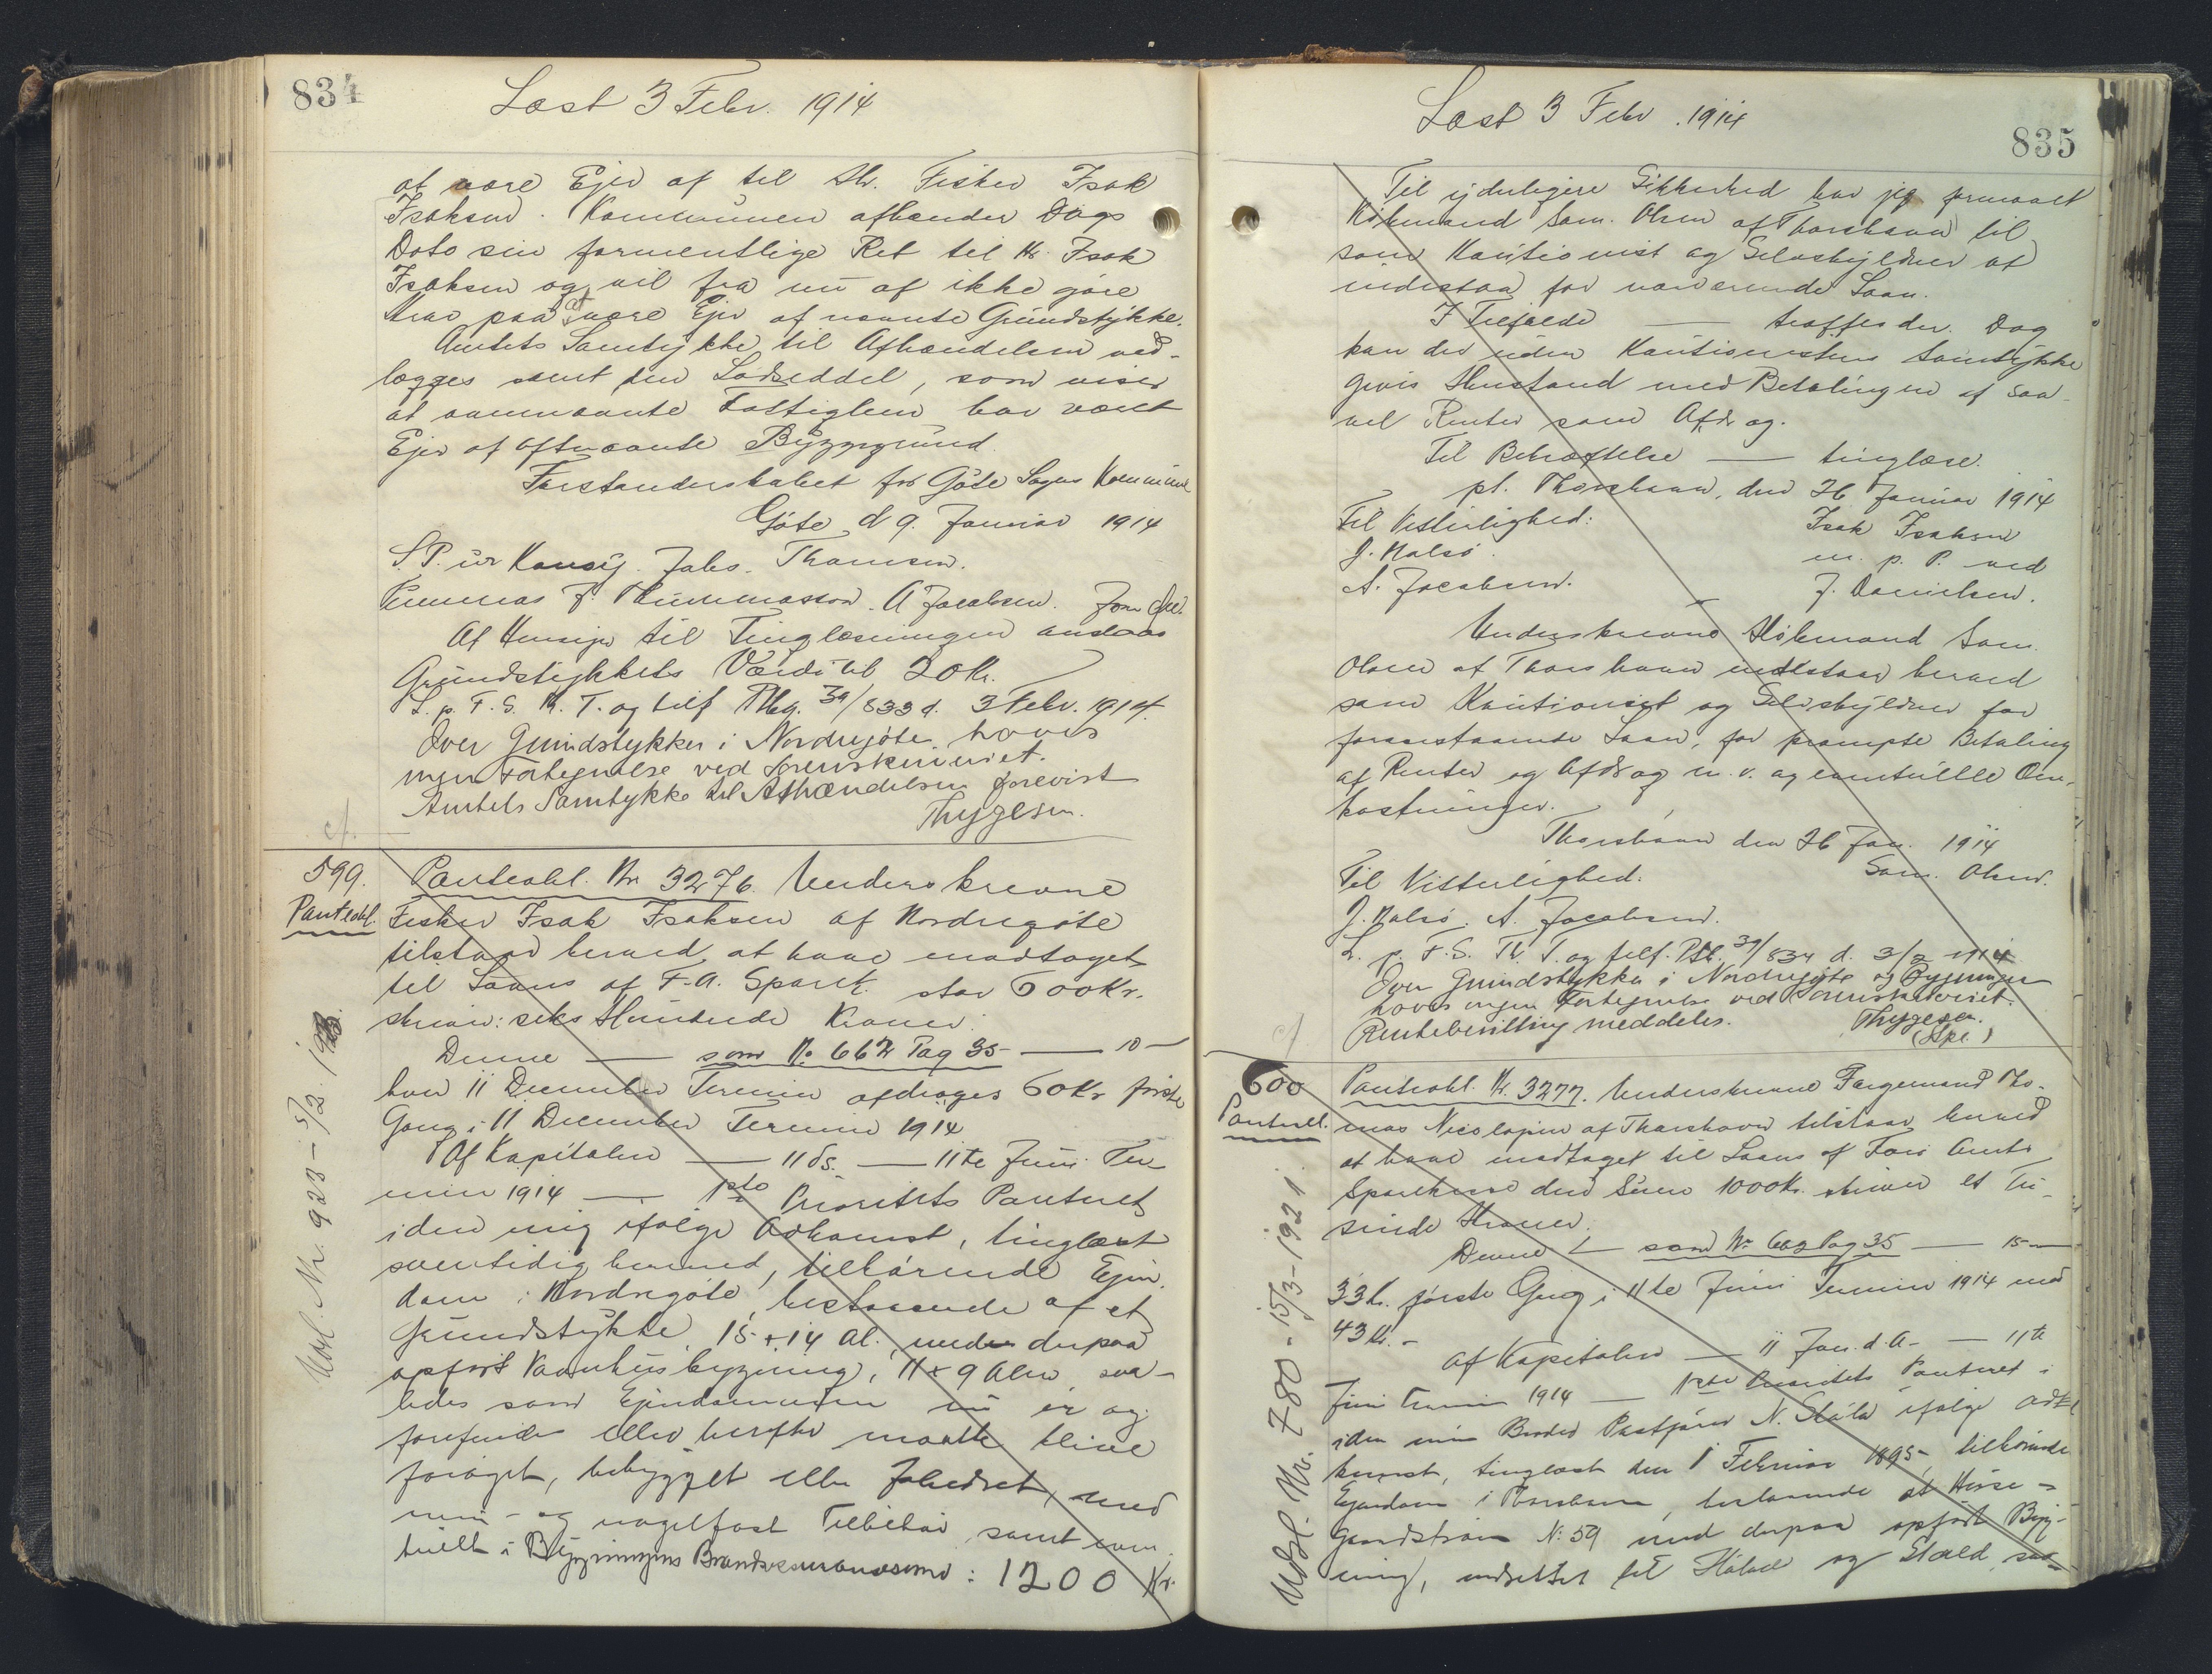 834
Læst 3 Febr. 1914
at være Ejer af til Hr. Fisker Isak
Isaksen. Kommunen afhænder Dags
Dato sin formentlige Ret til Hr. Isak
Isaksen og vil fra nu af ikke gøre
Krav paa at være Ejer af nævnte Grundstykke.
Amtets Samtykke til Afhændelsen ved-
lægges samt den Lodseddel, som viser
at samme Fattiglem har været
Ejer af oftnævnte Byggegrund.
Forstanderskabet for Gøte Sogns Kommune
Gøte, d 9. Januar 1914
S.P. úr Konoy. Jabs. Thomsen.
Tummas J. Thummasson. A Jacobsen.
Af Hensyn til Tinglæsningen ansættes
Grundstykkets Værdi til 20 Kr.
L. p. F. S. Th. T. og tilf Pbg. 39/833 d. 3 Febr. 1914.
Over Grundstykker i Nordregøte haves
ingen Fortegnelse ved Sorenskriveriet.
Amtets Samtykke til Afhændelsen forevist
Thygesen.
cf.
599.
Panteobl.
Panteobl. Nr. 3276. Underskrevne
Fisker Isak Isaksen af Nordregøte
tilstaar herved, at have modtaget
til Laans af F. A. Spark. stor 600 Kr.
skriver: seks Hundrede Kroner.
Denne — som No 662 Pag 35 — 10 —
hver 11 December Termin afdrages 60 Kr første
Gang i 11 December Termin 1914
Af Kapitalen — 11 ds. — 11te Juni Ter-
min 1914 — 1ste Prioritets Panteret
i den mig ifølge Adkomst, tinglæst
samtidig hermed, tilhørende Ejen-
dom i Nordregøte, bestaaende af et
Grundstykke, 15 x 14 Al., med en derpaa
opført Vaanhusbygning, 11 x 9 Alen, saa-
ledes som Ejendommen nu er og
forefindes eller herefter maatte blive
forøget, bebygget eller forbedret, med
mur- og nagelfast Tilbehør samt even-
tuelt i Bygningens Brandassurancesum: 1200 Kr.
Udsl. Nr. 923 - 5/2. 1923.
Læst 3 Febr. 1914
835
Til yderligere Sikkerhed har jeg formaaet
Købmand Sam. Olsen af Thorshavn til
som Kautionist og Selvskyldner at
indestaa for nærværende Laan.
I Tilfælde — træffes der. Dog
kan der uden Kautionistens Samtykke
gives Henstand med Betalingen af saa-
vel Renter som Afdrag.
Til Bekræftelse — tinglæse.
pt. Thorshavn, den 26 Januar 1914
Til Vitterlighed: Isak Isaksen
J. Nalsø. m. p. P. ved
A. Jacobsen. J. Danielsen.
Underskrevne Købmand Sam.
Olsen af Thorshavn indestaar herved
som Kautionist og Selvskyldner for
foranstaaende Laan, for prompte Betaling
af Renter og Afdrag m. v. og eventuelle Om-
kostninger.
Thorshavn den 26 Jan. 1914
Til Vitterlighed: Sam. Olsen.
J. Nalsø. A. Jacobsen.
L. p. F. S. Th. T. og tilf. Pbl. 39/834 d. 3/2 1914
Over Grundstykker i Nordregøte og Bygninger
haves ingen Fortegnelse ved Sorenskriveriet.
Rentebevilling meddeles. Thygesen.
cf
600
Panteobl.
Panteobl. Nr. 3277. Underskrevne Færgemand Tho-
mas Nicolajsen af Thorshavn tilstaar herved
at have modtaget til Laans af Færø Amts
Sparekasse den Summa 1000 Kr. skriver et Tu-
sinde Kroner.
Denne — som No 662 Pag 35 — 15 —
33 Kr. første Gang i 11te Juni Termin 1914 med
43 Kr. -
Af Kapitalen — 11 Jan. d. A. — 11te
Juni Termin 1914 — 1ste Prioritets Panteret i
i den min Broder Postfører N. Skála ifølge Ad-
komst, tinglæst den 1 Februar 1895, tilhørende
Ejendom i Thorshavn, bestaaende af Huse-
Grundstrøm No. 59 med derpaa opført Byg-
ning, indrettet til og Stald, saa-
Udsl. Nr. 780 - 15/3 - 1921.